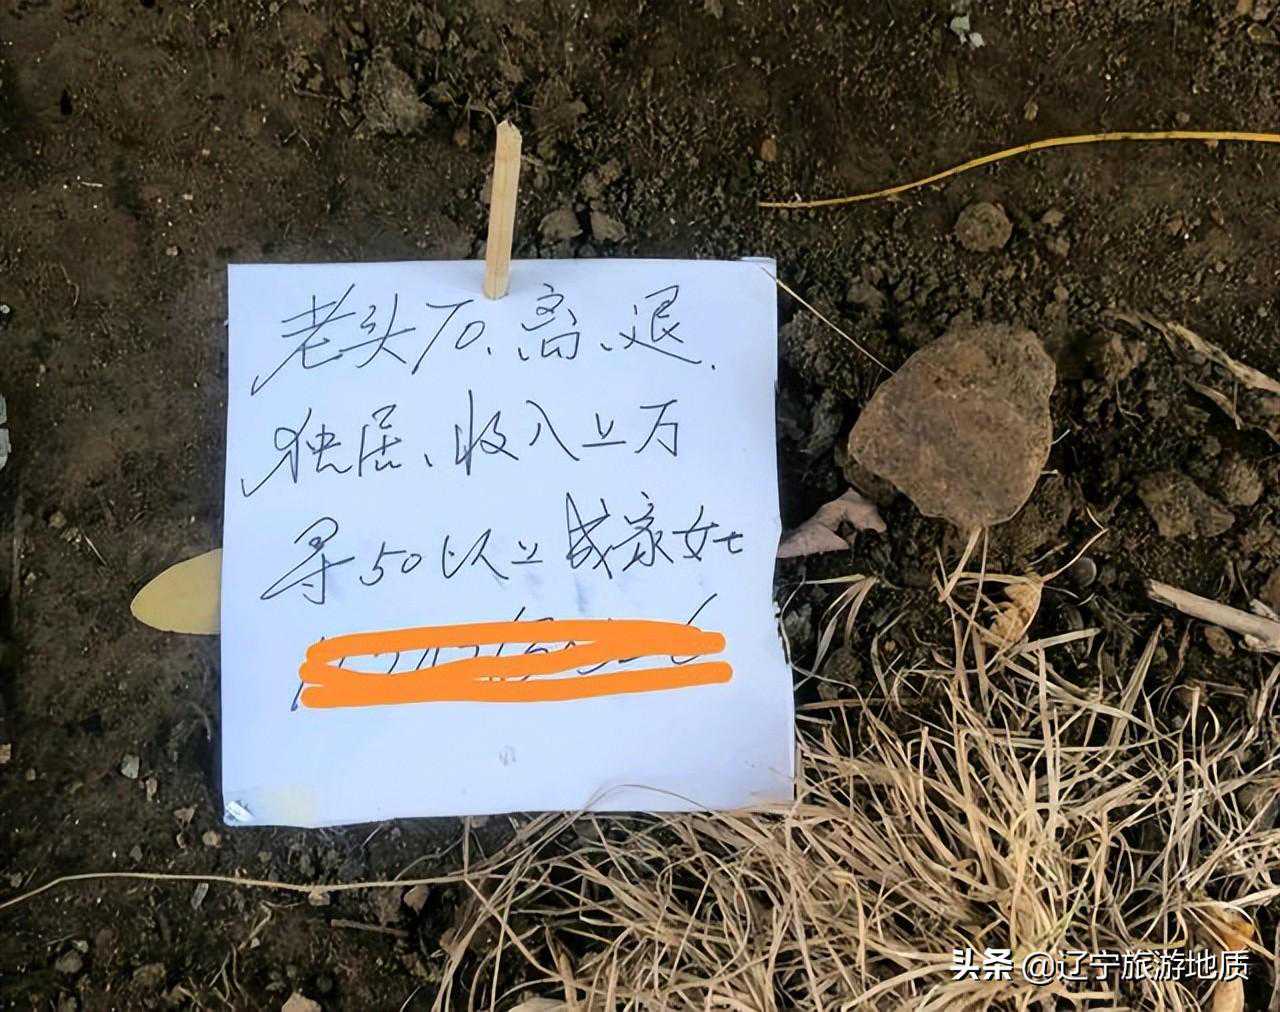 老头70、离、退.
独居、收入上万
寻50以上成家女士
头条 @辽宁旅游地质